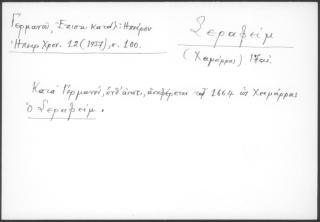 Γερμανοῦ, Ἐπισκ. κατάλ. Ἠπείρου
Ἠπειρ. Χρον. 12 (1937), σ. 100.
Σεραφείμ
(Χειμάρρας)
Κατὰ Γερμανόν, ἀναφέρεται τῷ 1664 ὡς Χειμάρρας
ὁ Σεραφείμ.